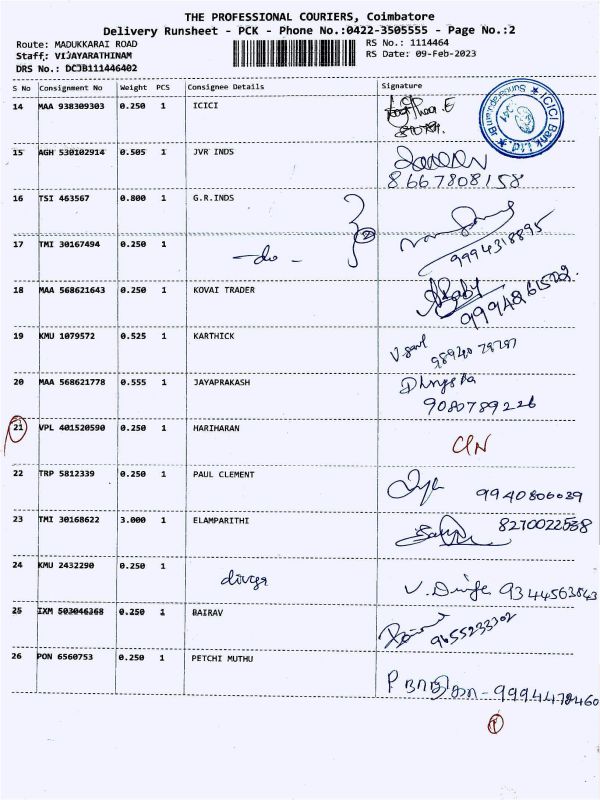 THE PROFESSIONAL COURIERS, Coimbatore
Delivery Runsheet - PCK - Phone No.:0422-3505555 - Page No.:2
Route: MADUKKARAI ROAD RS No.: 1114464
Staff: VIJAYARATHINAM RS Date: 09-Feb-2023
DRS No.: DCJB111446402
S No Consignment No Weight PCS Consignee Details Signature
14 MAA 938309303 0.250 1 ICICI
ICICI Bank Ltd
15 AGH 530102914 0.505 1 JVR INDS
8667808158
16 TSI 463567 0.800 1 G.R.INDS
2
17 TMI 30167494 0.250 1 -do-
9994318895
18 MAA 568621643 0.250 1 KOVAI TRADER
19 KMU 1079572 0.525 1 KARTHICK
20 MAA 568621778 0.555 1 JAYAPRAKASH
9080789226
21 VPL 401520590 0.250 1 HARIHARAN
22 TRP 5812339 0.250 1 PAUL CLEMENT
9940806039
23 TMI 30168622 3.000 1 ELAMPARITHI
8270022538
24 KMU 2432290 0.250 1 divya
9344563843
25 IXM 503046368 0.250 1 BAIRAV
9655233302
26 PON 6560753 0.250 1 PETCHI MUTHU
9994478460